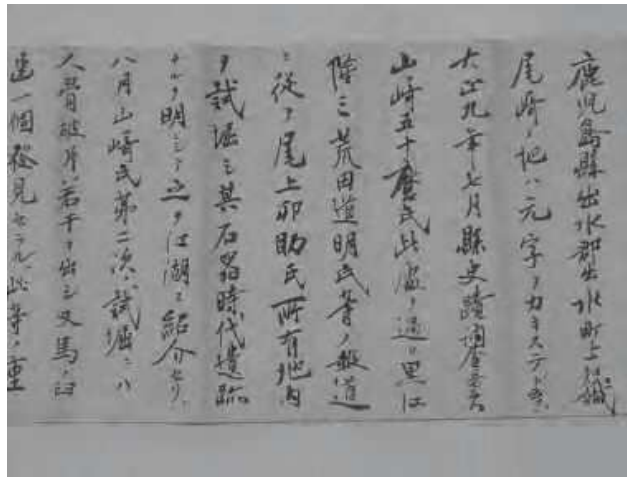 鹿児島縣出水郡出水町上知識
尾崎ノ地ハ元字ヲカキステト云フ、
大正九年七月縣史蹟調査委員
山崎五十麿氏此處ヲ過リ黒江
隆三荒田道明氏等ノ報道
ニ従ヒ尾上卯助氏所有地内
ヲ試堀シ其石器時代遺跡
ナルヲ明ニシテ之ヲ江湖ニ紹介セリ、
八月山崎氏第二次試堀ニハ
人骨破片若干ヲ出シ又馬ノ臼
歯一個発見セラル、此等ノ重